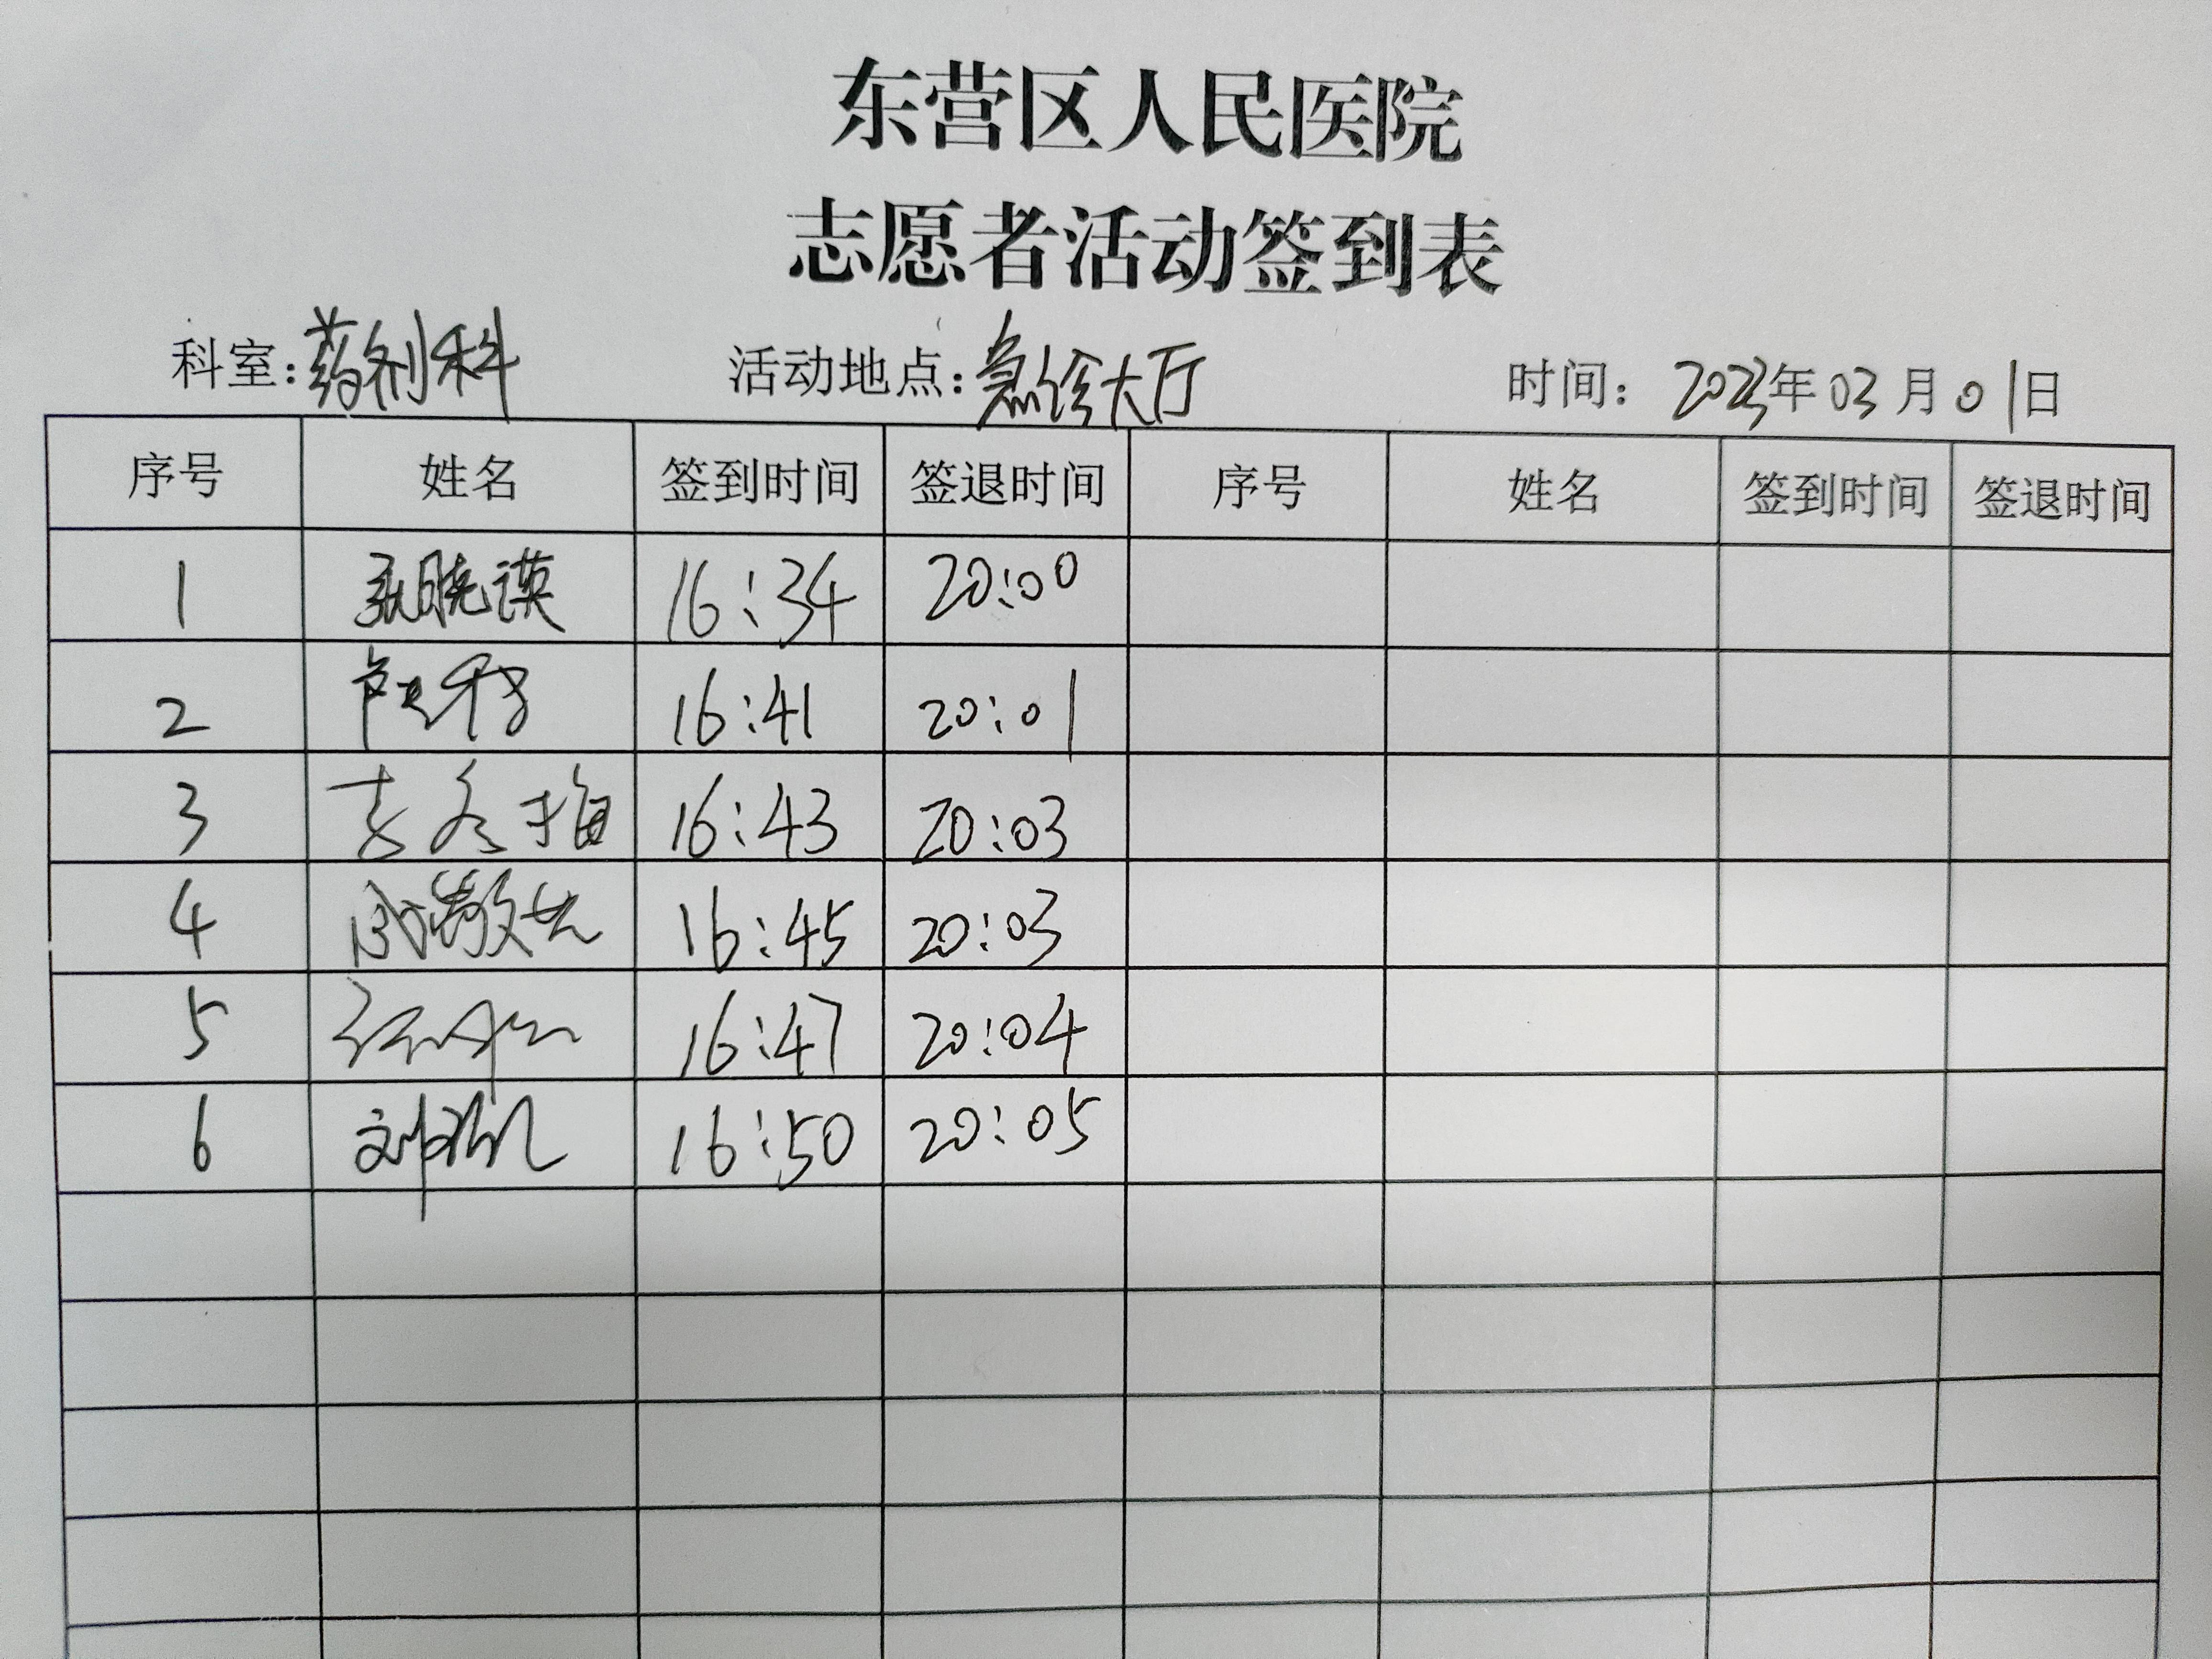 东营区人民医院
志愿者活动签到表
科室:药剂科 活动地点:急诊大厅 时间: 2023年03月01日
序号 姓名 签到时间 签退时间 序号 姓名 签到时间 签退时间
1 16:34 20:00
2 16:41 20:01
3 16:43 20:03
4 16:45 20:03
5 16:47 20:04
6 16:50 20:05